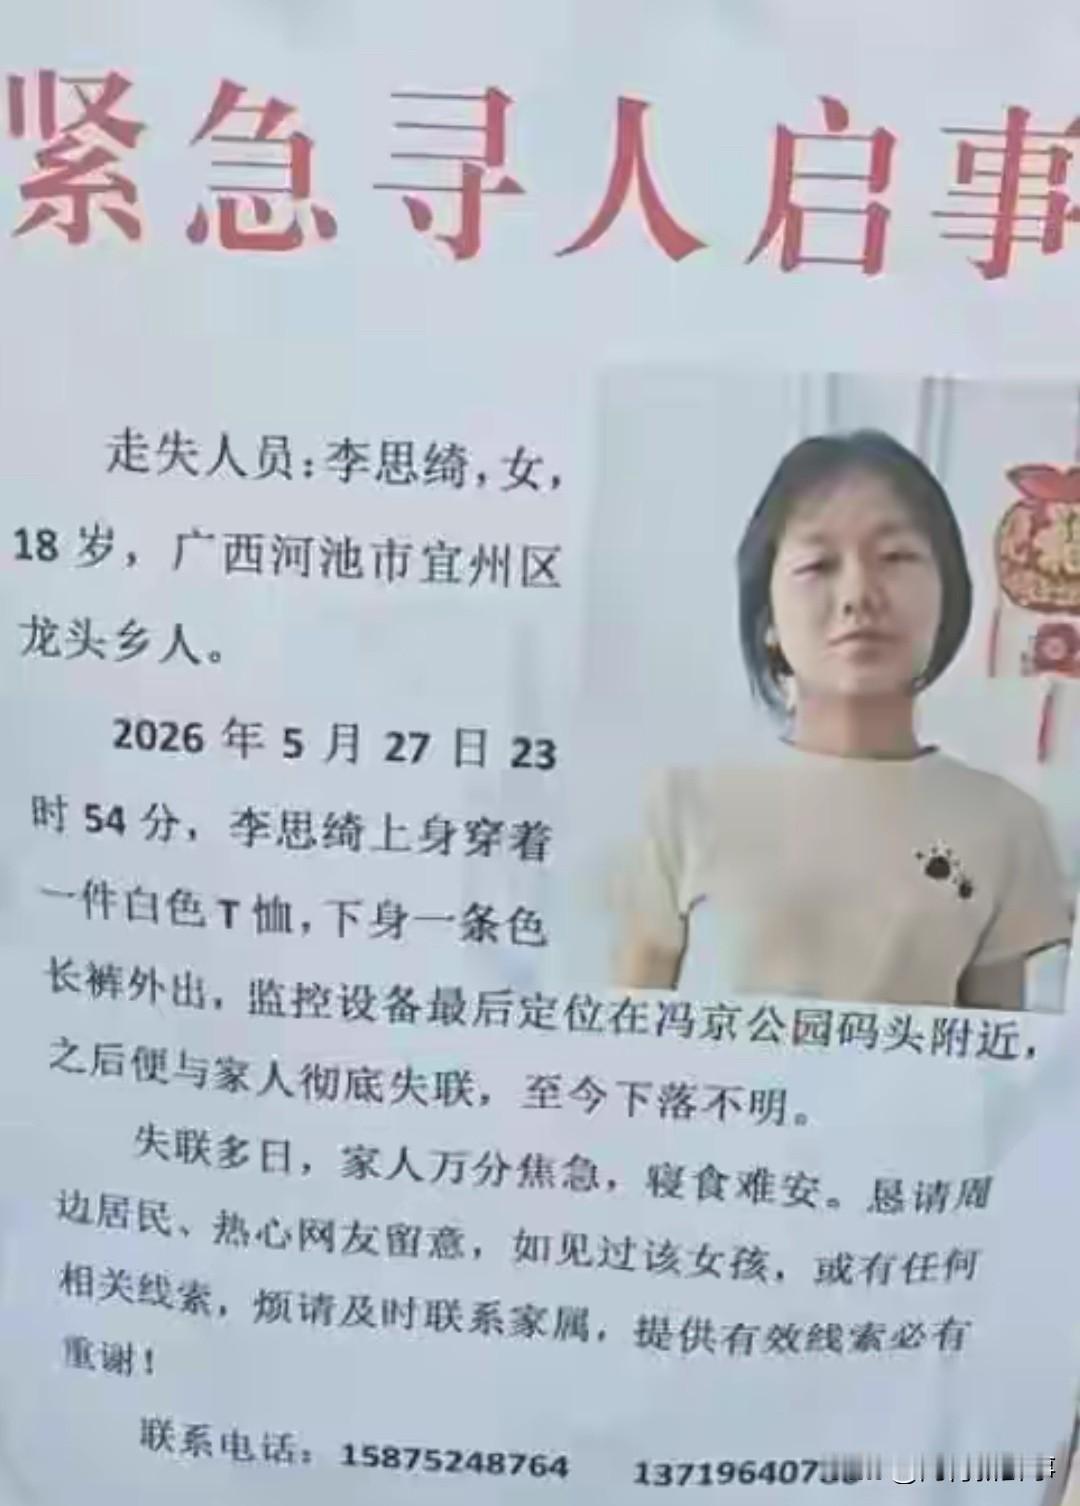 紧急寻人启事
走失人员：李思绮，女，
18岁，广西河池市宜州区
龙头乡人。
2026年5月27日23
时54分，李思绮上身穿着
一件白色T恤，下身一条色
长裤外出，监控设备最后定位在冯京公园码头附近，
之后便与家人彻底失联，至今下落不明。
失联多日，家人万分焦急，寝食难安。恳请周
边居民、热心网友留意，如见过该女孩，或有任何
相关线索，烦请及时联系家属，提供有效线索必有
重谢！
联系电话：15875248764 137196407